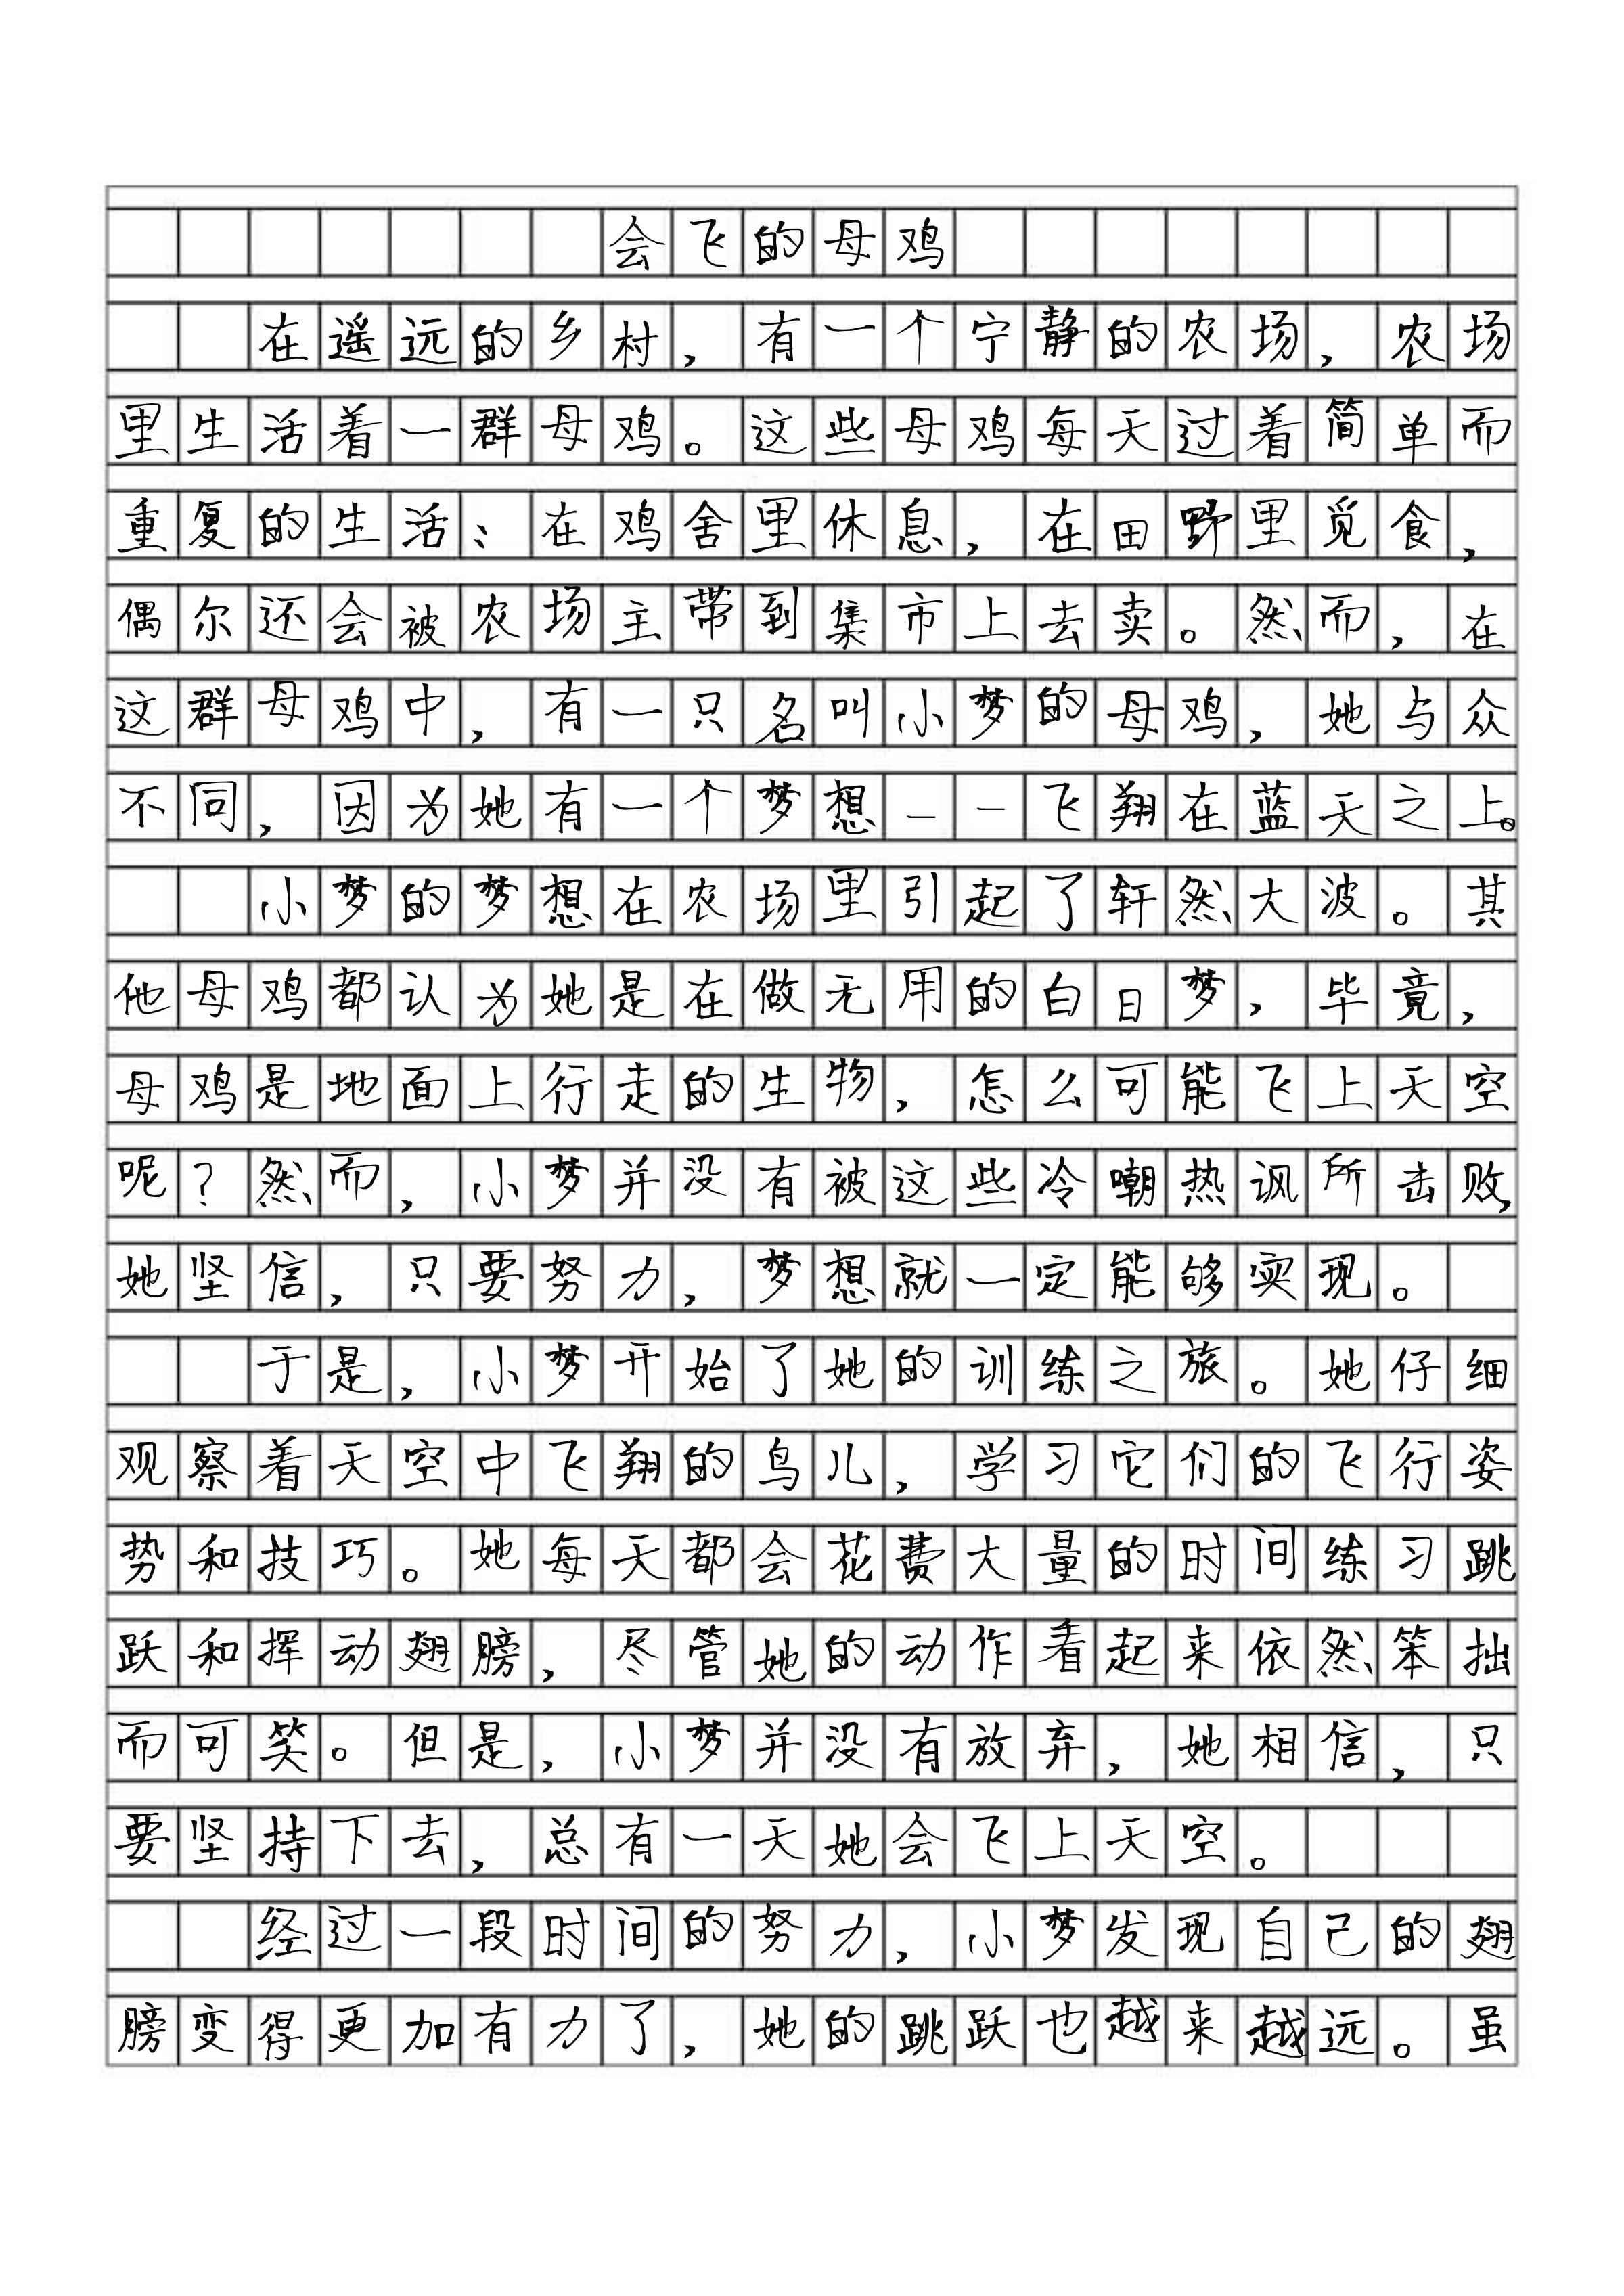 会飞的母鸡
在遥远的乡村，有一个宁静的农场，农场
里生活着一群母鸡。这些母鸡每天过着简单而
重复的生活：在鸡舍里休息，在田野里觅食，
偶尔还会被农场主带到集市上去卖。然而，在
这群母鸡中，有一只名叫小梦的母鸡，她与众
不同，因为她有一个梦想——飞翔在蓝天之上。
小梦的梦想在农场里引起了轩然大波。其
他母鸡都认为她是在做无用的白日梦，毕竟，
母鸡是地面上行走的生物，怎么可能飞上天空
呢？然而，小梦并没有被这些冷嘲热讽所击败，
她坚信，只要努力，梦想就一定能够实现。
于是，小梦开始了她的训练之旅。她仔细
观察着天空中飞翔的鸟儿，学习它们的飞行姿
势和技巧。她每天都会花费大量的时间练习跳
跃和挥动翅膀，尽管她的动作看起来依然笨拙
而可笑。但是，小梦并没有放弃，她相信，只
要坚持下去，总有一天她会飞上天空。
经过一段时间的努力，小梦发现自己的翅
膀变得更加有力了，她的跳跃也越来越远。虽